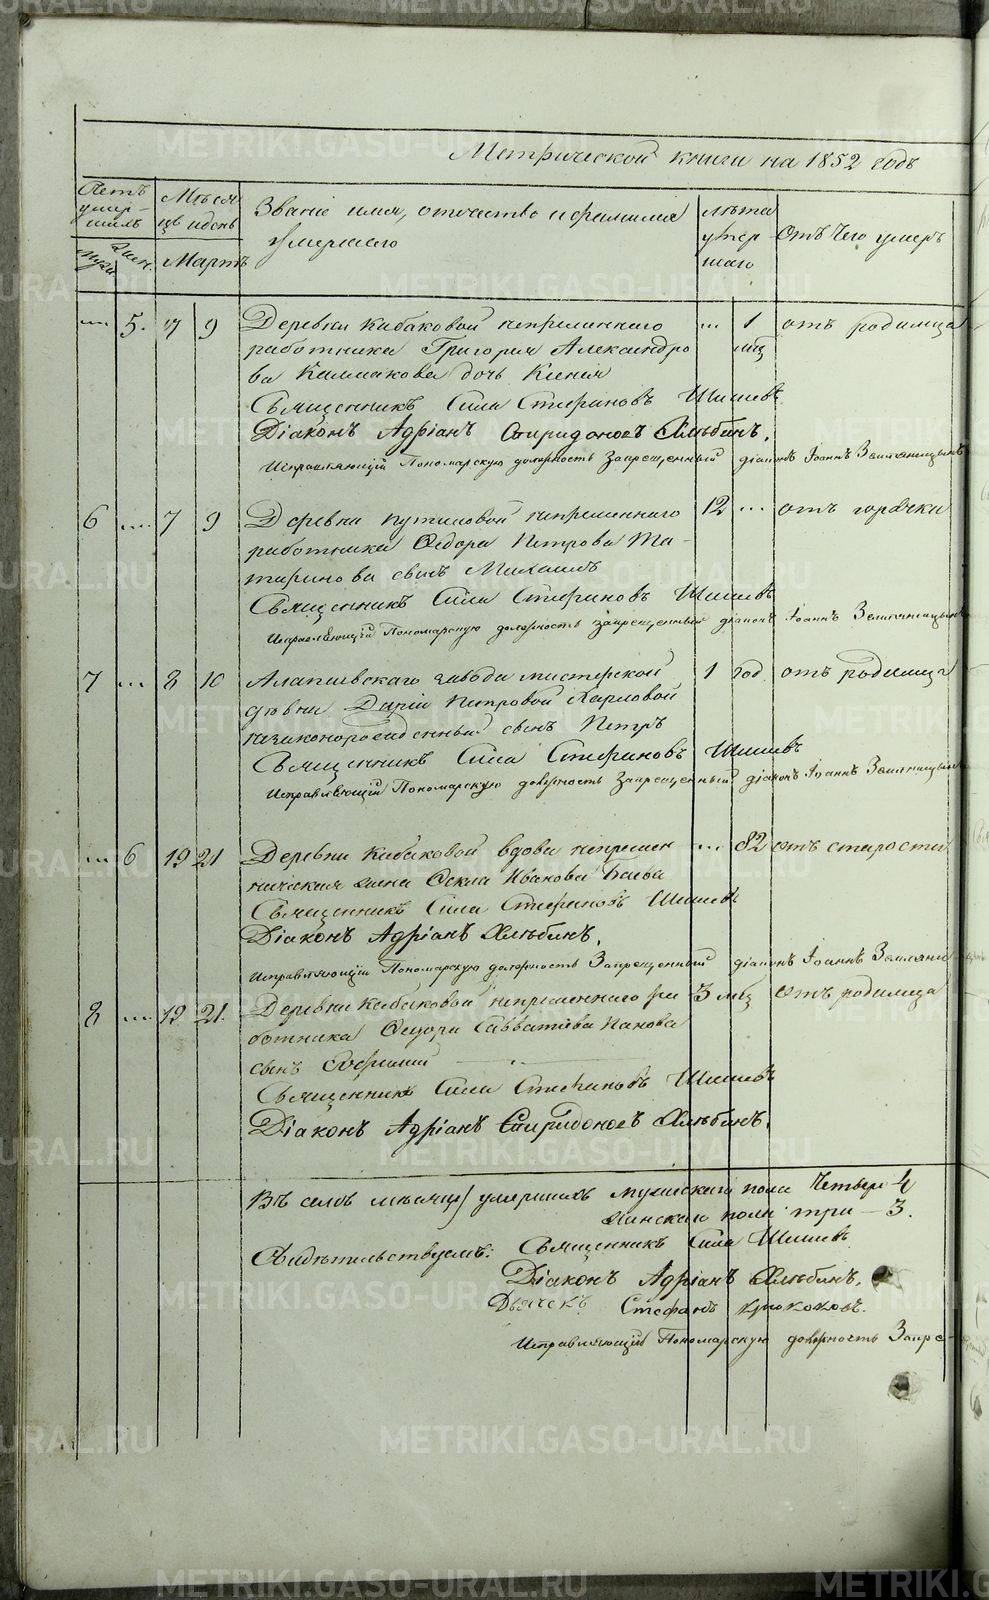 Метрической книги на 1852 годъ
Счетъ умер-шихъ
Мѣсяцъ и день
Званіе имя, отчество и фамилія умершаго
лѣта умершаго
отъ чего умеръ
муж. жен.
Мартъ
... 5. 7 9 Деревни Кабаковой непременнаго ... 1 отъ родимца
работника Григорія Александро мц
ва Калмакова дочь Ксенія
Священникъ Сила Стефановъ Шишевъ
Діаконъ Адріанъ Спиридоновъ Хлѣбинъ.
Исправляющій Пономарскую должность Запрещенный діаконъ Іоаннъ Земляницынъ
6 ... 7 9 Деревни Путиловой непременнаго 12 ... отъ горячки
работника Федора Петрова Та-
таринова сынъ Михаилъ
Священникъ Сила Стефановъ Шишевъ
Исправляющій Пономарскую должность запрещенный діаконъ Іоаннъ Земляницынъ
7 ... 8 10 Алапаевскаго завода мастерской 1 год. отъ родимца
дѣвки Даріи Петровой Харловой
незаконорожденный сынъ Петръ
Священникъ Сила Стефановъ Шишевъ
Исправляющій Пономарскую должность Запрещенный діаконъ Іоаннъ Земляницынъ
... 6 19 21 Деревни Кабаковой вдова непремен ... 82 отъ старости
ническая жена Фекла Иванова
Священникъ Сила Стефановъ Шишевъ
Діаконъ Адріанъ Хлѣбинъ.
Исправляющій Пономарскую должность Запрещенный діаконъ Іоаннъ Земляни
8 ... 19 21. Деревни Кабаковой непременнаго ра 3 мц отъ родимца
ботника Федора Савватіева Панова
сынъ Софроній
Священникъ Сила Стефановъ Шишевъ
Діаконъ Адріанъ Спиридоновъ Хлѣбинъ.
Въ семъ мѣсяцѣ умершихъ мужескаго пола Четыре 4
женскаго пола три — 3.
Свидѣтельствуемъ: Священникъ Сила Шишевъ
Діаконъ Адріанъ Хлѣбинъ.
Дьячекъ Стефанъ
Исправляющій Пономарскую должность Запре-
METRIKI.GASO-URAL.RU